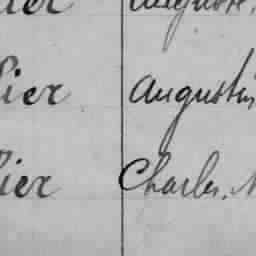 ier Auguste,
lier Augustin
lier Charles, N